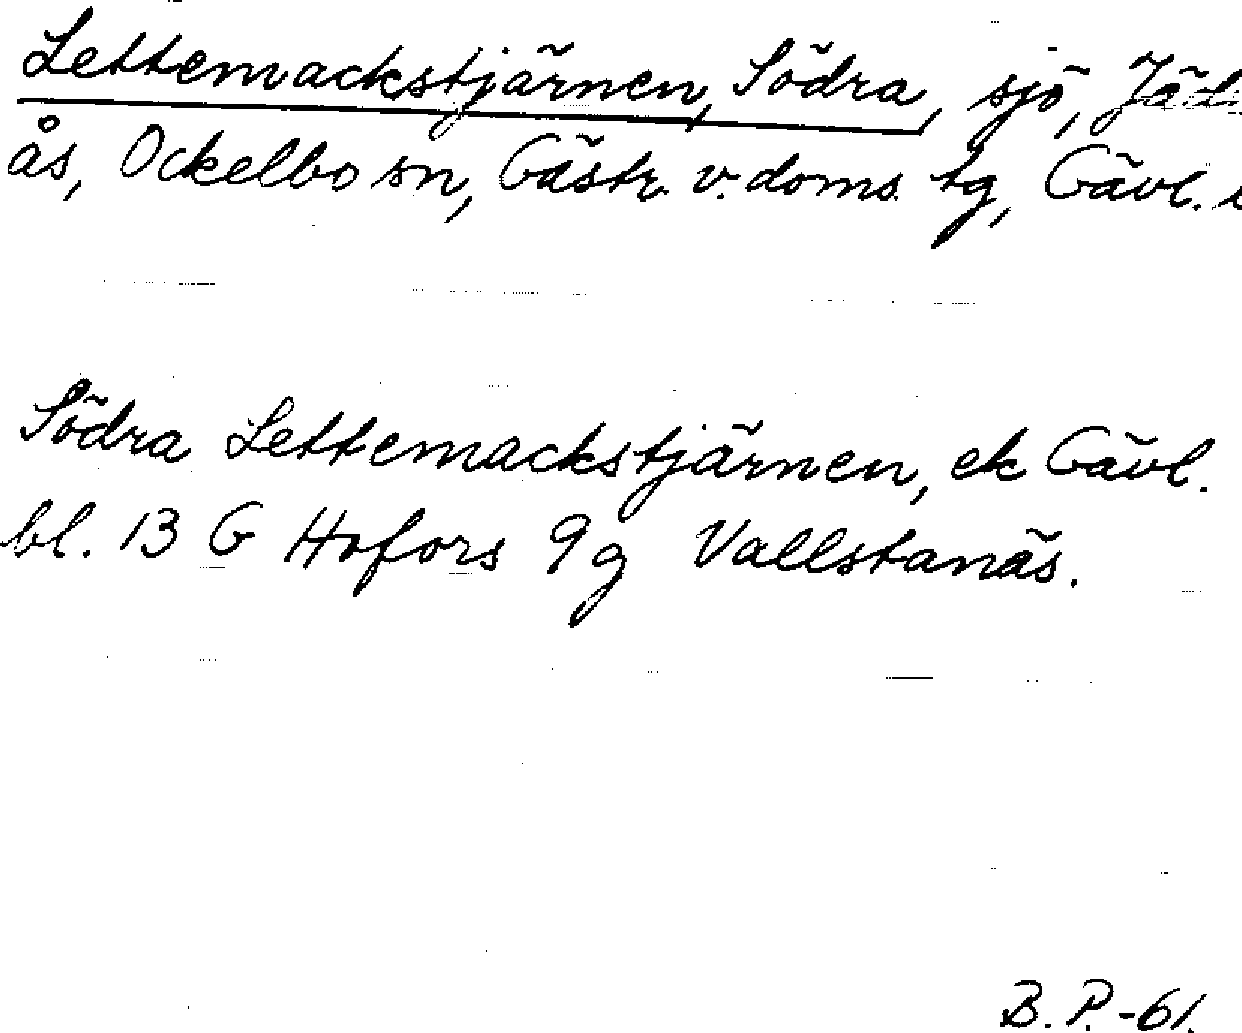 Lettemackstjärnen, Södra, sjö, Jäd
ås, Ockelbo sn, Gästr. v. doms. tg, Gävl.
Södra Lettemackstjärnen, ek Gävl.
bl. 13 G Hofors 9g Vallstanäs.
B. P. -61.